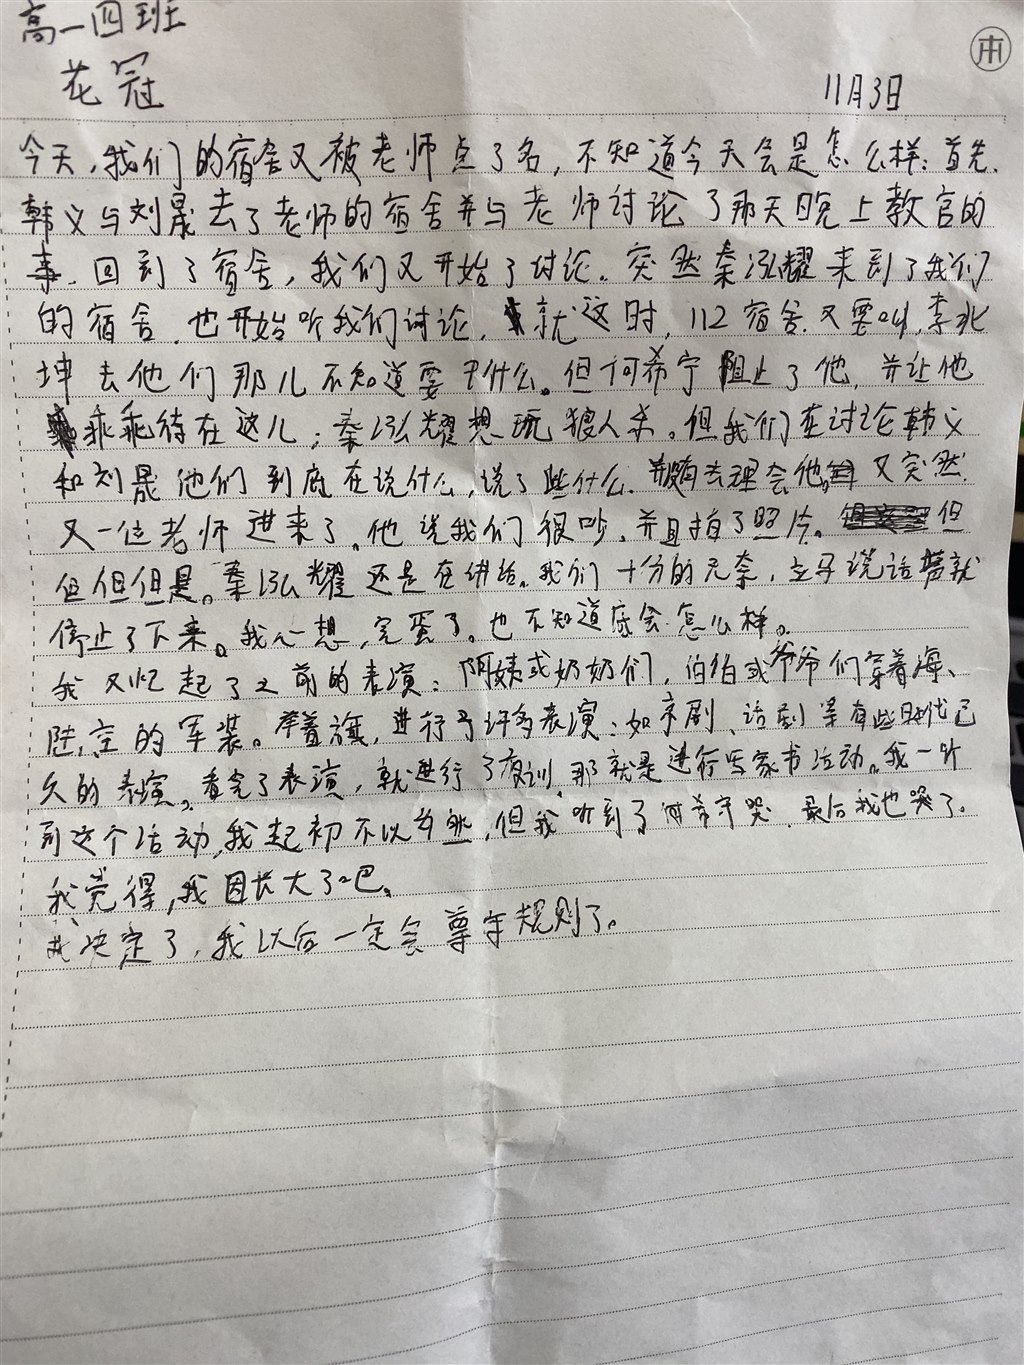 高一四班
花冠
11月3日
今天，我们的宿舍又被老师点了名，不知道今天会是怎么样：首先.
韩义与刘晟去了老师的宿舍并与老师讨论了那天晚上教官的
事.回到了宿舍，我们又开始了讨论。突然秦泓耀来到了我们
的宿舍.也开始听我们讨论.就这时，112宿舍又要叫，李兆
坤去他们那儿不知道要干什么。但何希宁阻止了他，并让他
乖乖待在这儿；秦泓耀想玩狼人杀。但我们在讨论韩义
和刘晟他们到底在说什么，说了些什么.并没有去理会他。又突然
又一位老师进来了。他说我们很吵，并且拍了照片。但
但但但是。秦泓耀还是在讲话。我们十分的无奈，说话就
停止了下来。我心想，完蛋了。也不知道底会怎么样。
我又忆起了之前的表演：阿姨或奶奶们，伯伯或爷爷们穿着海、
陆,空的军装。举着旗，进行了许多表演：如京剧、话剧等有些年代已
久的表演。看完了表演，就进行了夜训，那就是进行写家书活动。我一听
到这个活动,我起初不以为然,但我听到了何希宁哭.最后我也哭了.
我觉得,我因长大了吧。
我决定了，我以后一定会尊守规则了。